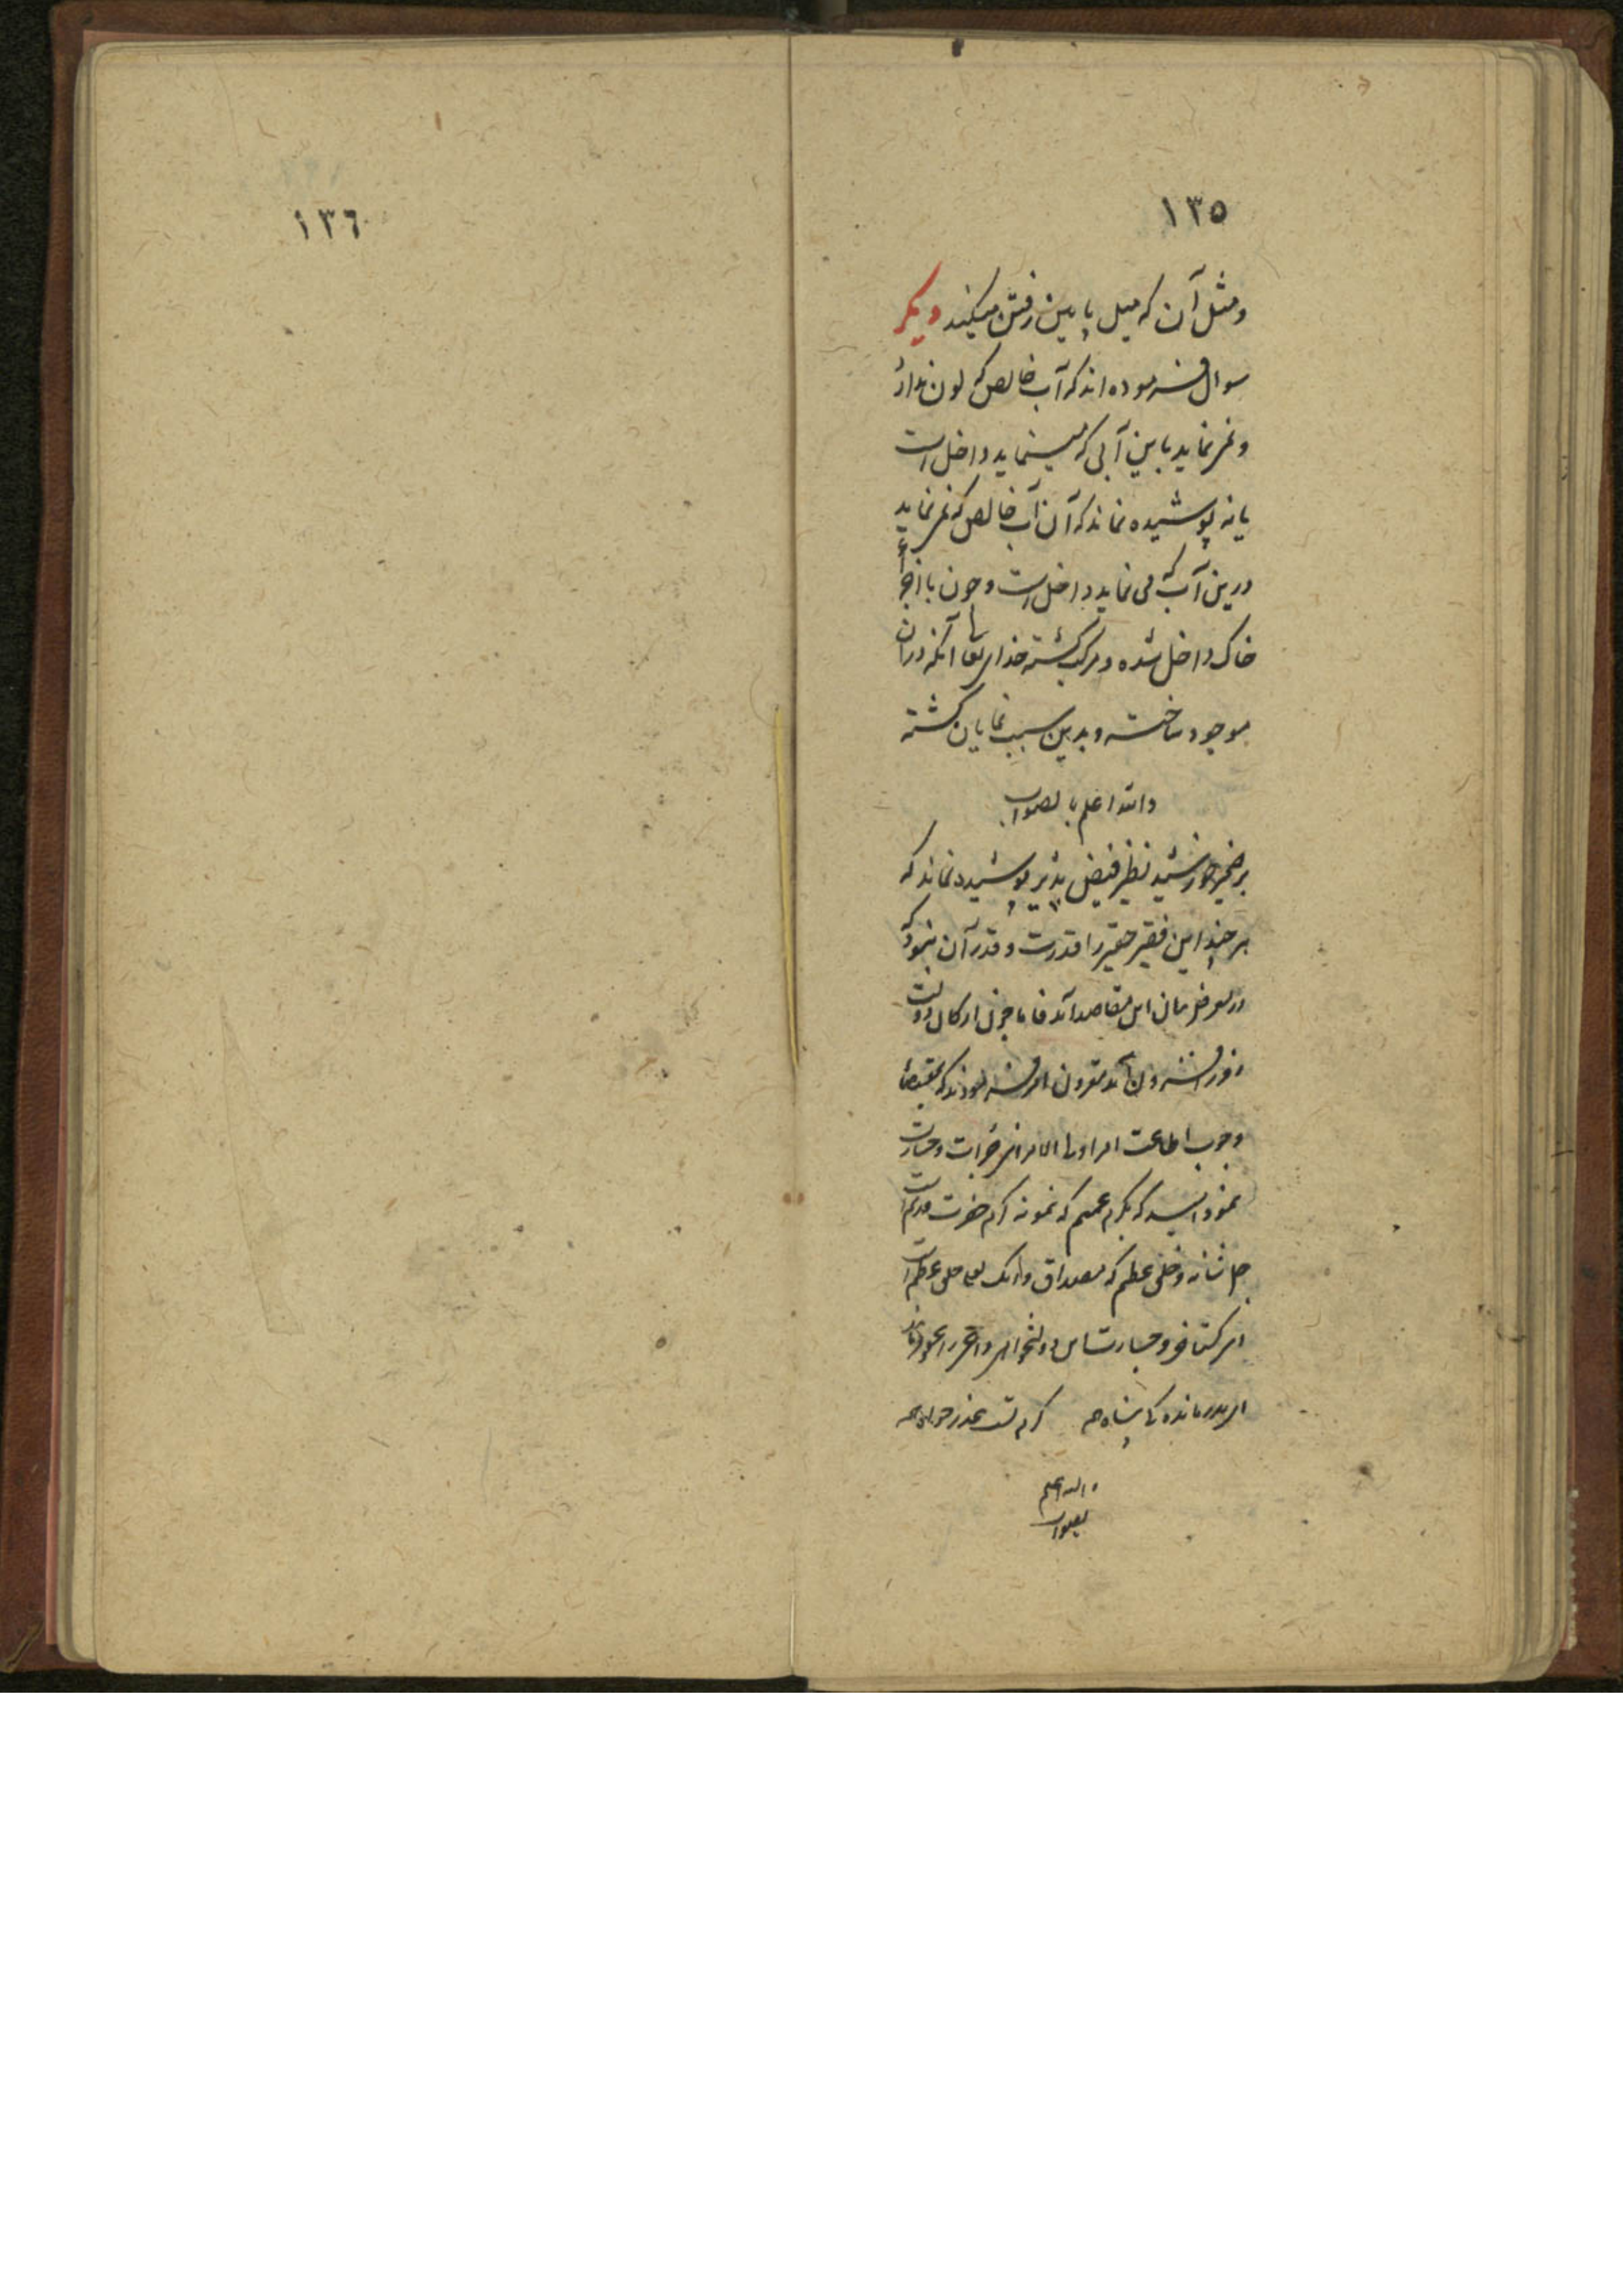 ١٣٥
ومثل آن که میل پایین رفتن میکند دیگر
سوال فرموده اند که آب خالص که لون ندارد
و نمی نماید باین آبی که مینماید داخل است
یا نه پوشیده نماند که آن آب خالص که نمی نماید
درین آب که می نماید داخل است و چون با اجزاء
خاک داخل شده و مرکب گشته خدای تعالی آنکه در آن
موجود ساخته و بدین سبب نمایان گشته
والله اعلم بالصواب
بر ضمیر خورشید نظیر فیض پذیر پوشیده نماند که
هر چند این فقیر حقیر را قدرت و قدر آن نبود که
در معرض بیان این مقاصد آید فاما چون ارکان دولت
روز افزون مقرون امر فرموده بودند که بمقتضای
وجوب اطاعت امر اولی الامر این جرات و جسارت
نمود امید که بکرم عمیم که نمونه کرم حضرت قدیم است
جل شانه و خلق عظیم که مصداق وانک لعلی خلق عظیم است
این گستاخی و جسارت این دولتخواهی را عفو فرمایند
ای بدرماندگی پناه همه کرم تست عذر خواه همه
والله اعلم
بالصواب
١٣٦